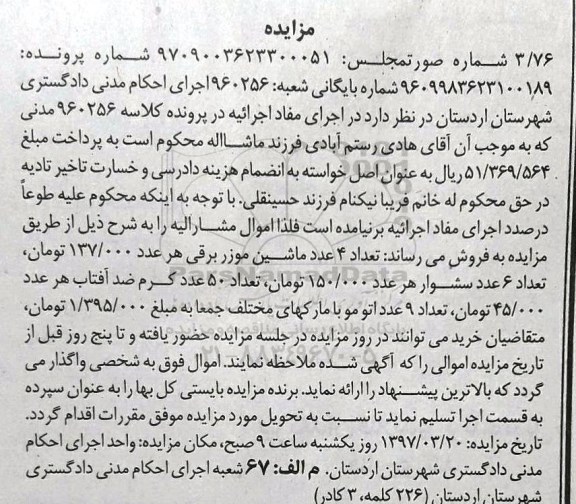 مزایده
۳/۷۶ شماره صورتمجلس: ۹۷۰۹۰۰۳۶۲۳۳۰۰۰۵۱ شماره پرونده:
۹۶۰۹۹۸۳۶۲۳۱۰۰۱۸۹ شماره بایگانی شعبه: ۹۶۰۲۵۶ اجرای احکام مدنی دادگستری
شهرستان اردستان در نظر دارد در اجرای مفاد اجرائیه در پرونده کلاسه ۹۶۰۲۵۶ مدنی
که به موجب آن آقای هادی رستم آبادی فرزند ماشااله محکوم است به پرداخت مبلغ
۵۱/۳۶۹/۵۶۴ ریال به عنوان اصل خواسته به انضمام هزینه دادرسی و خسارت تاخیر تادیه
در حق محکوم له خانم فریبا نیکنام فرزند حسینقلی. با توجه به اینکه محکوم علیه طوعاً
درصدد اجرای مفاد اجرائیه برنیامده است فلذا اموال مشارالیه را به شرح ذیل از طریق
مزایده به فروش می رساند: تعداد ۴ عدد ماشین موزر برقی هر عدد ۱۳۷/۰۰۰ تومان،
تعداد ۶ عدد سشوار هر عدد ۱۵۰/۰۰۰ تومان، تعداد ۵۰ عدد کرم ضد آفتاب هر عدد
۴۵/۰۰۰ تومان، تعداد ۹ عدد اتو مو با مارکهای مختلف جمعا به مبلغ ۱/۳۹۵/۰۰۰ تومان،
متقاضیان خرید می توانند در روز مزایده در جلسه مزایده حضور یافته و تا پنج روز قبل از
تاریخ مزایده اموالی را که آگهی شده ملاحظه نمایند. اموال فوق به شخصی واگذار می
گردد که بالاترین پیشنهاد را ارائه نماید. برنده مزایده بایستی کل بها را به عنوان سپرده
به قسمت اجرا تسلیم نماید تا نسبت به تحویل مورد مزایده موفق مقررات اقدام گردد.
تاریخ مزایده: ۱۳۹۷/۰۳/۲۰ روز یکشنبه ساعت ۹ صبح، مکان مزایده: واحد اجرای احکام
مدنی دادگستری شهرستان اردستان. م الف: ۶۷ شعبه اجرای احکام مدنی دادگستری
شهرستان اردستان (۲۲۶ کلمه، ۳ کادر)
ParsNamadData